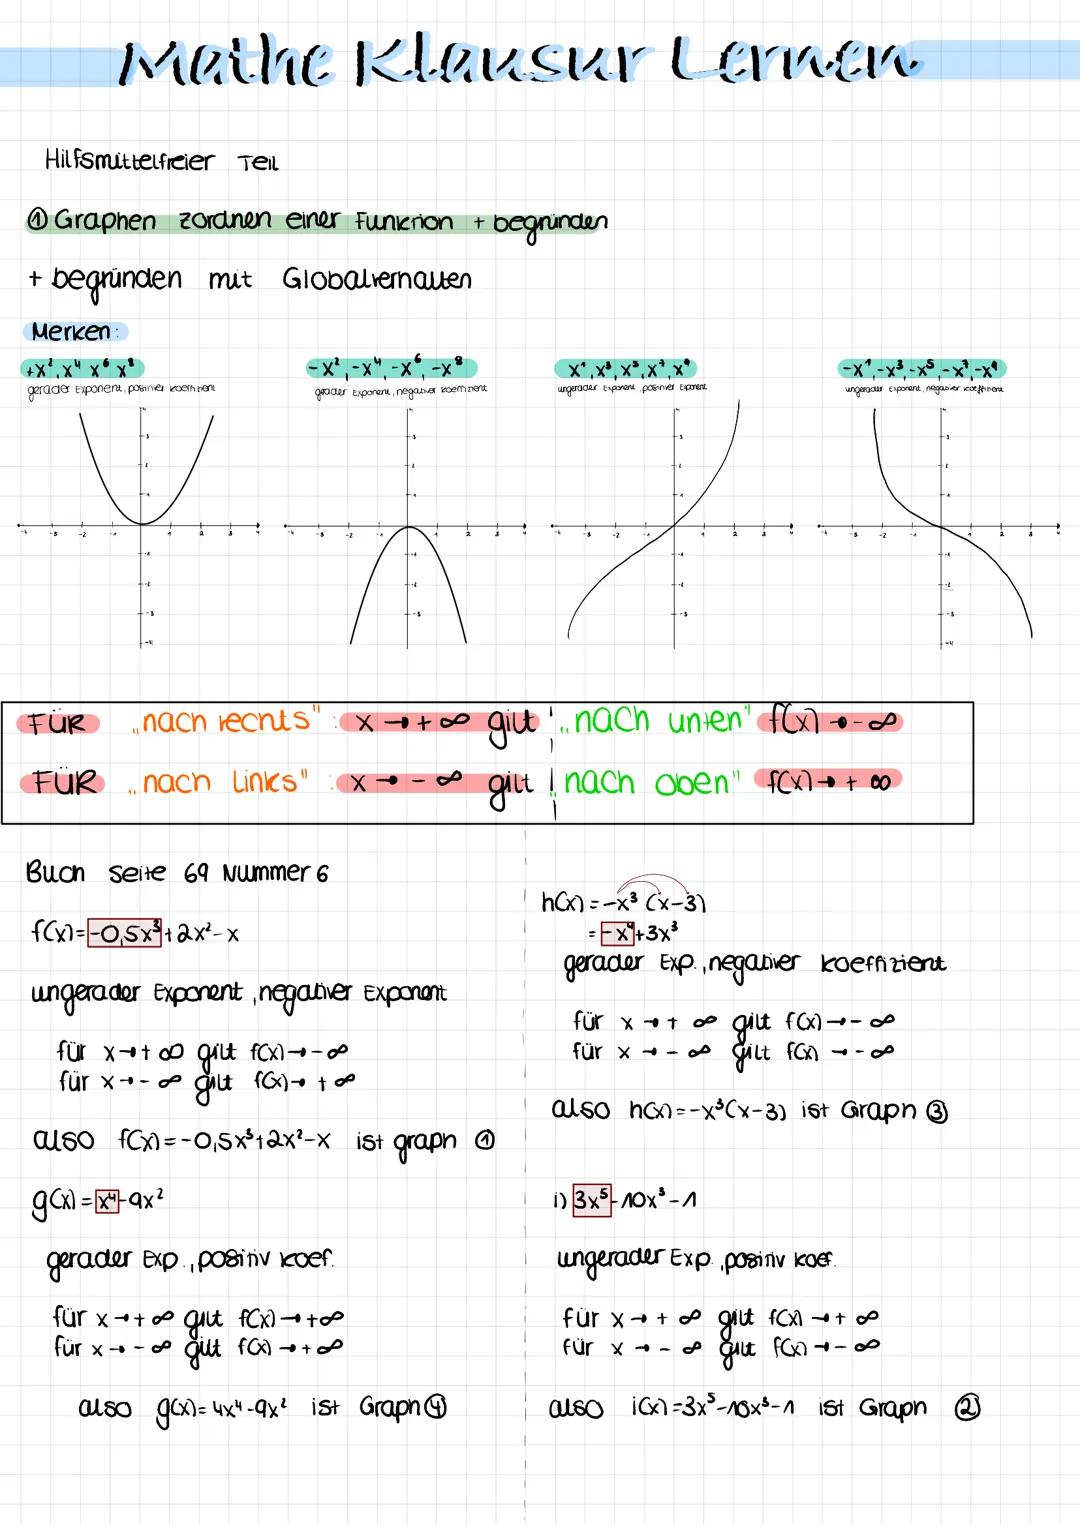 Mathe Klausur Lernen
Hilfsmittelfreier Teil
① Graphen zordnen einer Funktion + begründen
+ begründen mit Globalverhalten
Merken:
+x², x⁴ x⁶ x⁸
gerader Exponent, positiver Koeffizient
-x², -x⁴, -x⁶, -x⁸
gerader Exponent, negativer Koeffizient
x¹, x³, x⁵, x⁷, x⁹
ungerader Exponent, positiver Exponent
-x¹, -x³, -x⁵, -x⁷, -x⁹
ungerader Exponent, negativer Koeffizient
FÜR „nach rechts": x → + ∞ gilt „nach unten" f(x) → - ∞
FÜR „nach Links": x → - ∞ gilt „nach oben" f(x) → + ∞
Buch Seite 69 Nummer 6
f(x) = -0,5x³ + 2x² - x
ungerader Exponent, negativer Exponent
für x → + ∞ gilt f(x) → - ∞
für x → - ∞ gilt f(x) → + ∞
also f(x) = -0,5x³ + 2x² - x ist graph ①
g(x) = x⁴ - 9x²
gerader Exp., positiv koef.
für x → + ∞ gilt f(x) → + ∞
für x → - ∞ gilt f(x) → + ∞
also g(x) = 4x⁴ - 9x² ist Graph ④
h(x) = -x³ (x-3)
= -x⁴ + 3x³
gerader Exp., negativer Koeffizient
für x → + ∞ gilt f(x) → - ∞
für x → - ∞ gilt f(x) → - ∞
also h(x) = -x³(x-3) ist Graph ③
i) 3x⁵ - 10x³ - 1
ungerader Exp., positiv koef.
für x → + ∞ gilt f(x) → + ∞
für x → - ∞ gilt f(x) → - ∞
also i(x) = 3x⁵ - 10x³ - 1 ist Graph ②